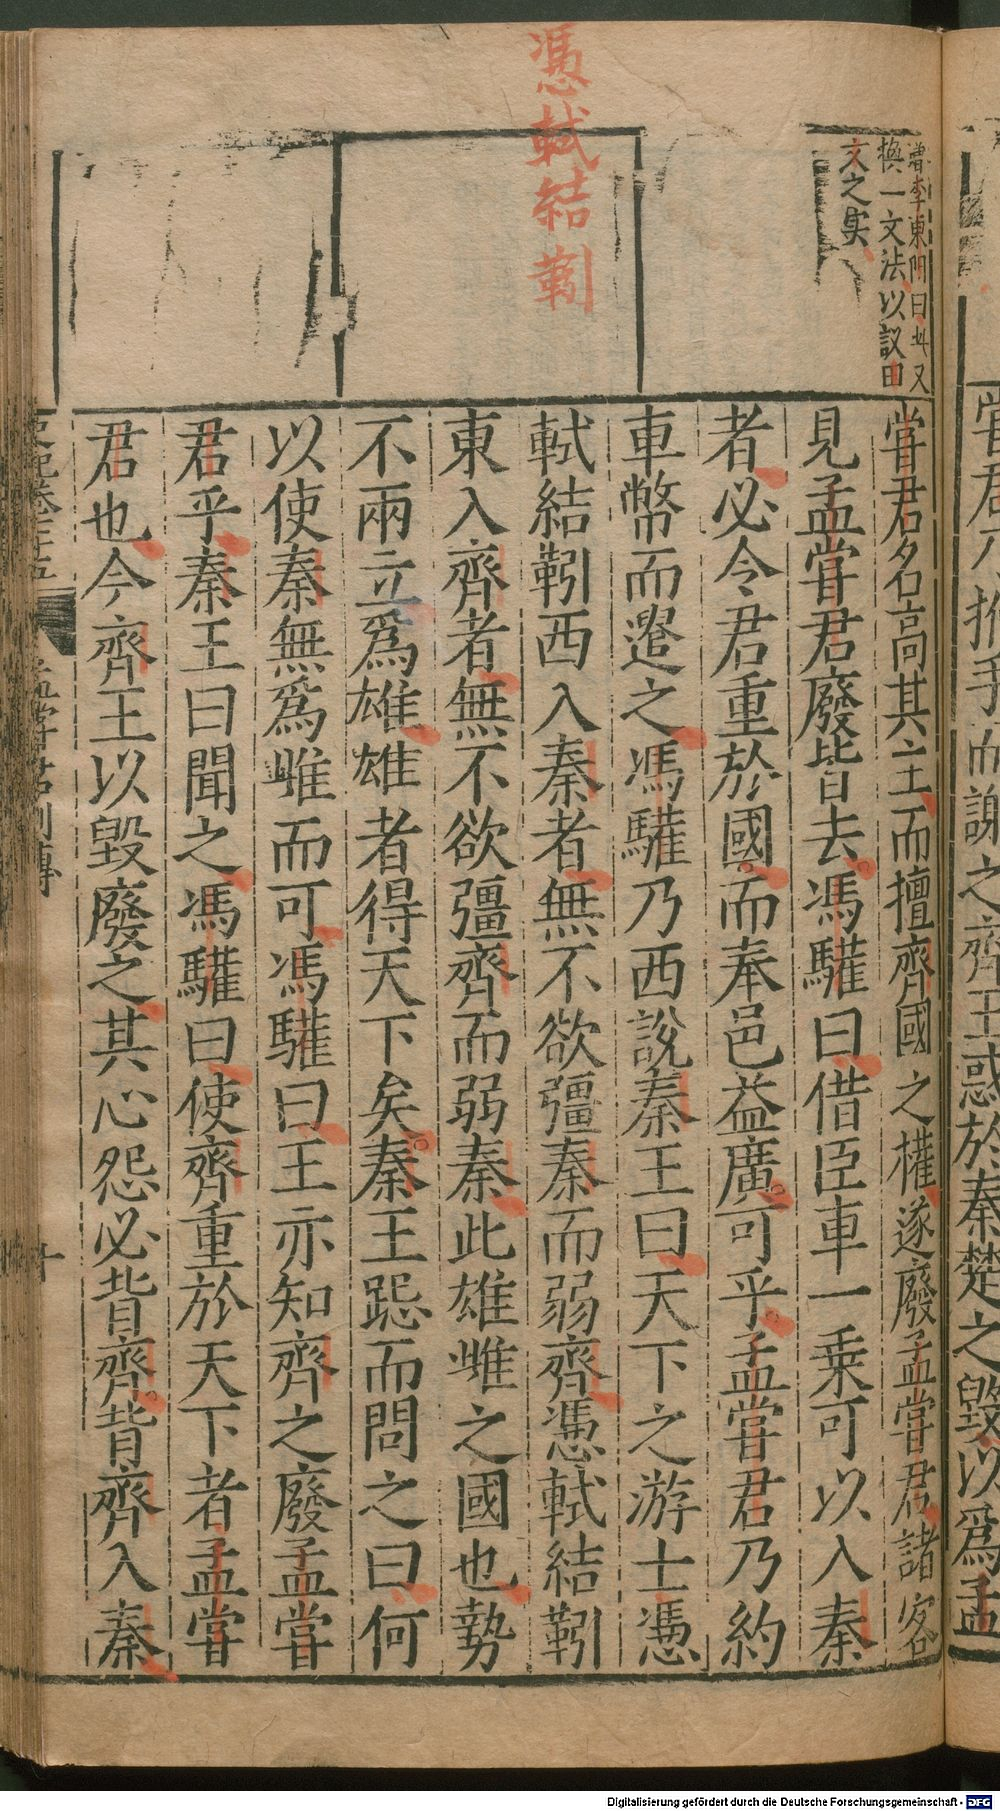 嘗君不推手而謝之齊王惑於秦楚之毀以爲孟
曾李東陽曰此又
換一文法以議田
文之矣
憑軾結靷
嘗君名高其主而擅齊國之權遂廢孟嘗君諸客
見孟嘗君廢皆去馮驩曰借臣車一乗可以入秦
者必令君重於國而奉邑益廣可乎孟嘗君乃約
車幣而遣之馮驩乃西說秦王曰天下之游士憑
軾結靷西入秦者無不欲彊秦而弱齊憑軾結靷
東入齊者無不欲彊齊而弱秦此雄雌之國也勢
不兩立爲雄雄者得天下矣秦王跽而問之曰何
以使秦無爲雌而可馮驩曰王亦知齊之廢孟嘗
君乎秦王曰聞之馮驩曰使齊重於天下者孟嘗
君也今齊王以毀廢之其心怨必背齊背齊入秦
史記卷七十五
孟嘗君列傳
十
Digitalisierung gefördert durch die Deutsche Forschungsgemeinschaft - DFG